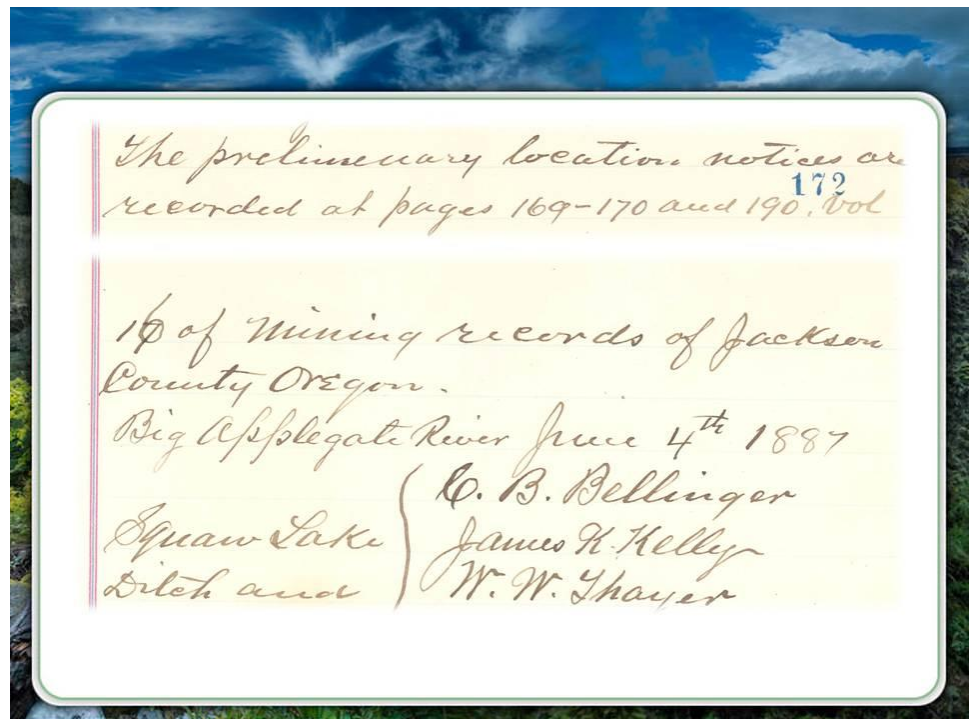 The prelimenary location notices are
172
recorded at pages 169-170 and 190. Vol
16 of Mining records of Jackson
County Oregon.
Big Applegate River June 4th 1887
C. B. Bellinger
Squaw Lake
James K. Kelly
Ditch and
W. W. Thayer